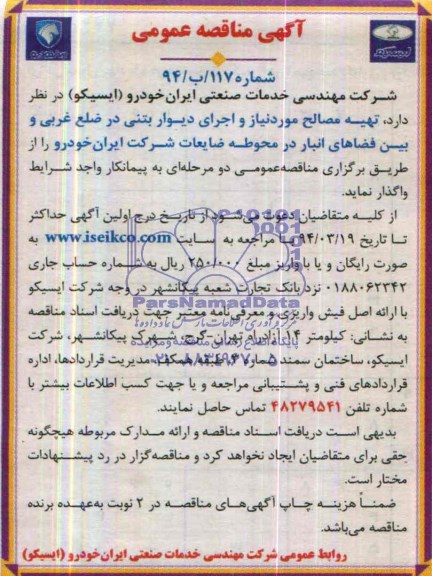 آگهی مناقصه عمومی
شماره ۱۱۷/ب/۹۴
شرکت مهندسی خدمات صنعتی ایران‌خودرو (ایسیکو) در نظر
دارد، تهیه مصالح موردنیاز و اجرای دیوار بتنی در ضلع غربی و
بین فضاهای انبار در محوطه ضایعات شرکت ایران‌خودرو را از
طریق برگزاری مناقصه‌عمومی دو مرحله‌ای به پیمانکار واجد شرایط
واگذار نماید.
از کلیه متقاضیان دعوت می‌شود از تاریخ درج اولین آگهی حداکثر
تا تاریخ ۹۴/۰۳/۱۹ با مراجعه به سایت www.iseikco.com به
صورت رایگان و یا با واریز مبلغ ۲۵۰/۰۰۰ ریال به شماره حساب جاری
۰۱۸۸۰۶۲۳۴۲ نزد بانک تجارت شعبه پیکانشهر در وجه شرکت ایسیکو
با ارائه اصل فیش واریزی و معرفی‌نامه معتبر جهت دریافت اسناد مناقصه
به نشانی: کیلومتر ۱۴ آزادراه تهران-کرج، شهرک پیکانشهر، شرکت
ایسیکو، ساختمان سمند شماره ۴، طبقه همکف، مدیریت قراردادها، اداره
قراردادهای فنی و پشتیبانی مراجعه و یا جهت کسب اطلاعات بیشتر با
شماره تلفن ۴۸۲۷۹۵۴۱ تماس حاصل نمایند.
بدیهی است دریافت اسناد مناقصه و ارائه مدارک مربوطه هیچگونه
حقی برای متقاضیان ایجاد نخواهد کرد و مناقصه‌گزار در رد پیشنهادات
مختار است.
ضمناً هزینه چاپ آگهی‌های مناقصه در ۲ نوبت به‌عهده برنده
مناقصه می‌باشد.
روابط عمومی شرکت مهندسی خدمات صنعتی ایران‌خودرو (ایسیکو)
ParsNamadData